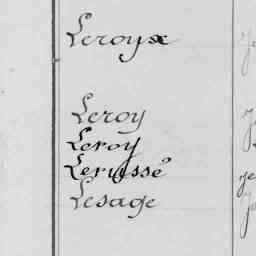 Leroyx
Leroy
Leroy
Lerussé
Lesage